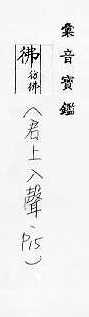 彙音寶鑑
佛彷彿
(君上入聲、P15)